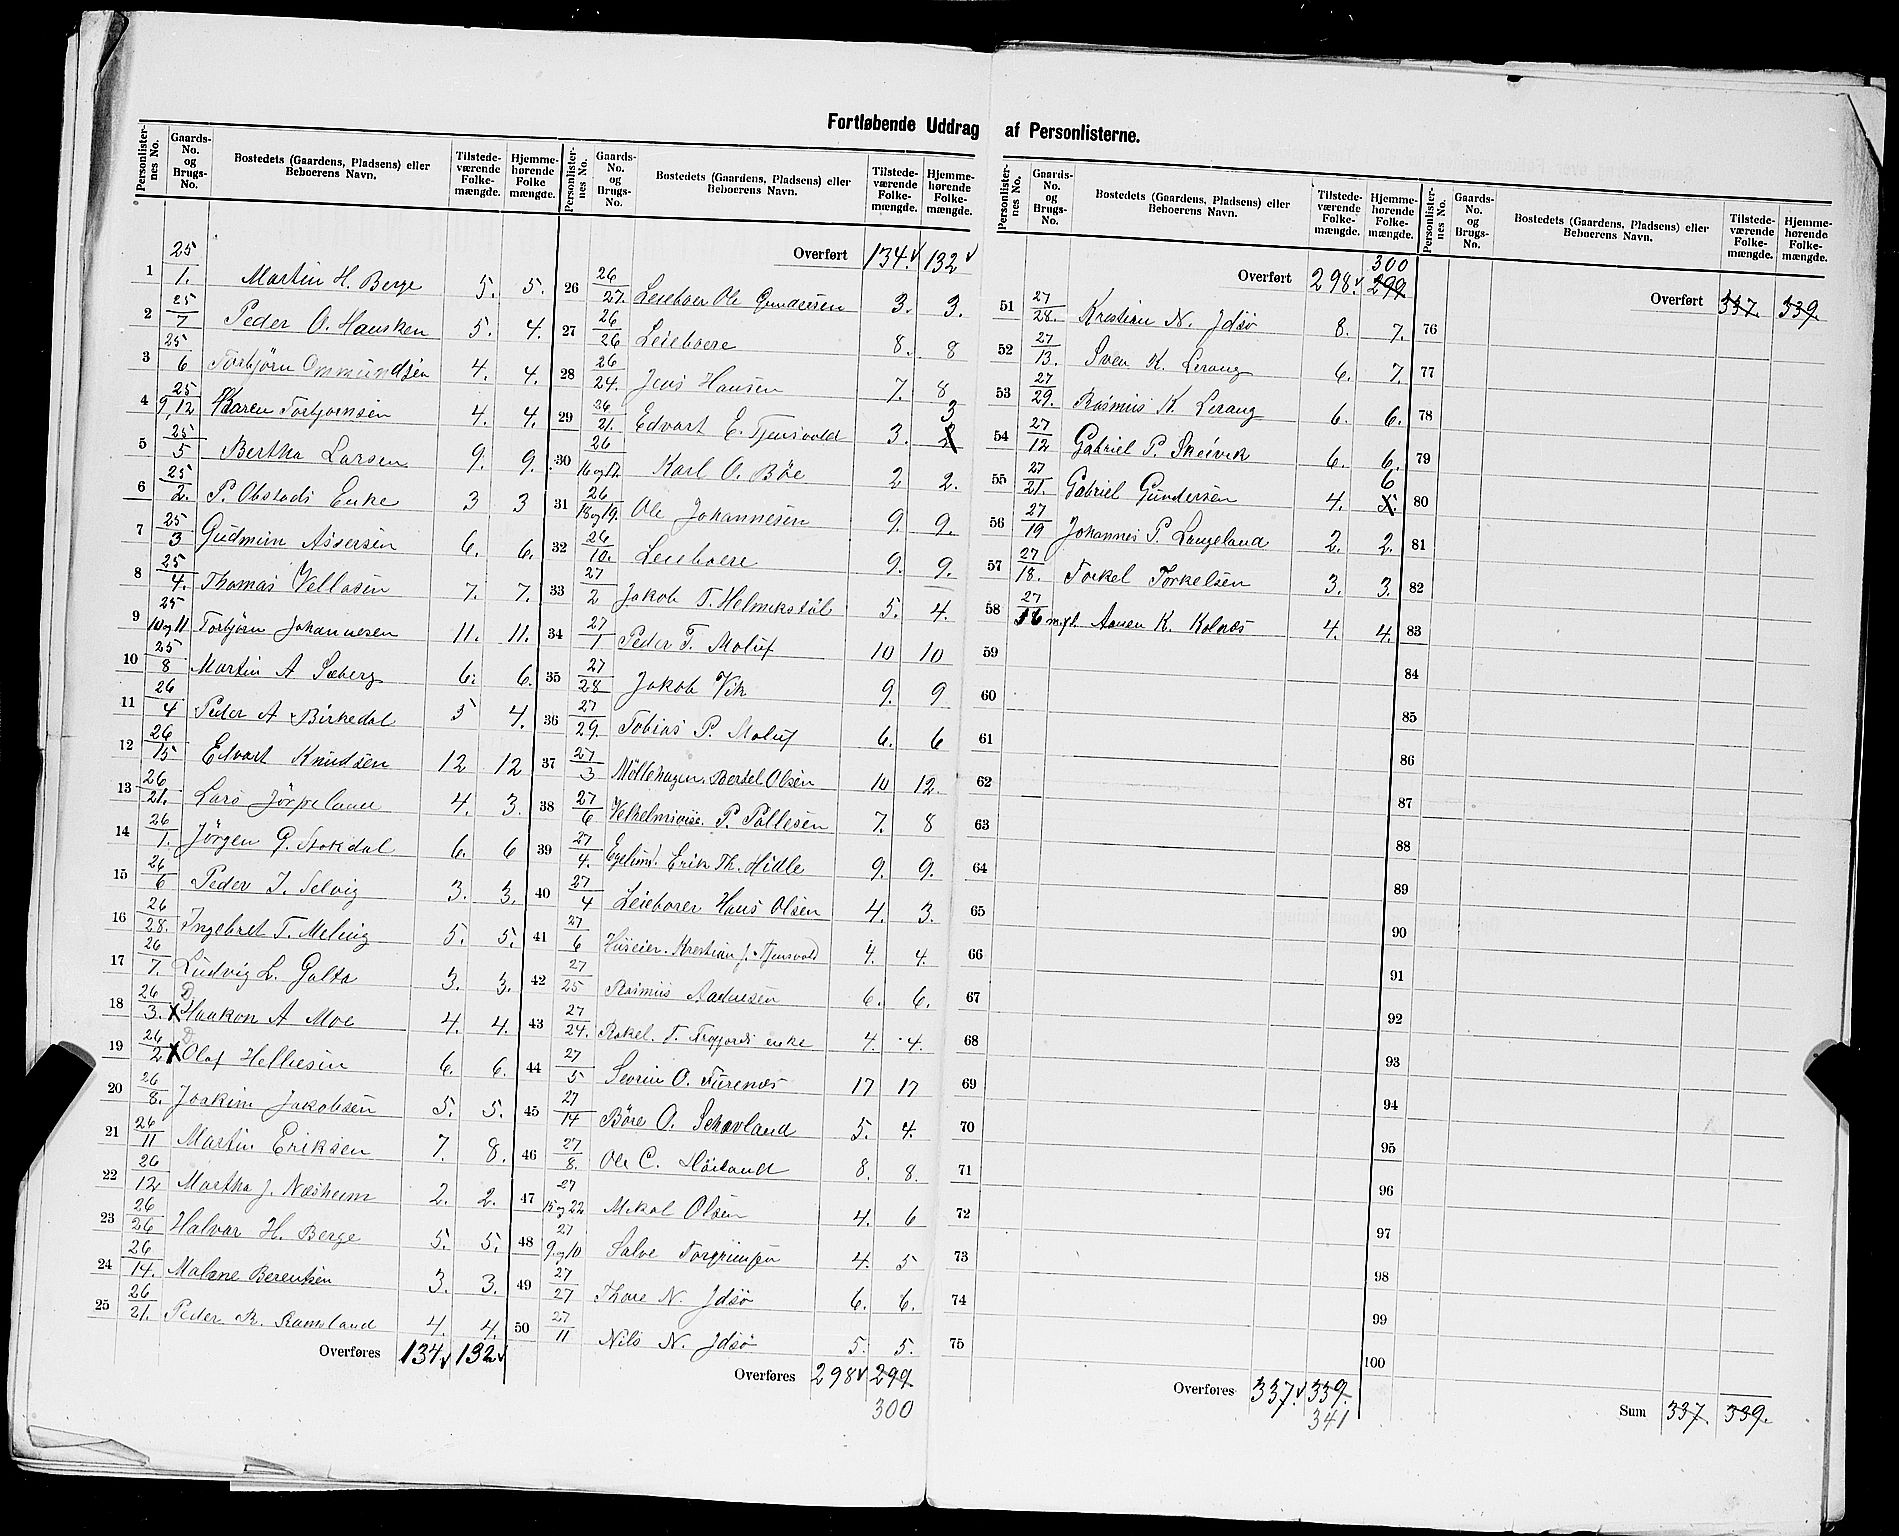 Fortløbende Uddrag af Personlisterne.
Personlister-nes No. Gaards-No. og Brugs-No. Bostedets (Gaardens, Pladsens) eller Beboerens Navn. Tilstede-værende Folke-mængde. Hjemme-hørende Folke mængde.
1 25/1. Martin H. Berge 5. 5.
2 25/7 Peder O. Hausken 5. 4.
3 25/6 Torbjørn Ommundsen 4. 4.
4 25/9,12 Karen Torbjørnsen 4. 4.
5 25/5 Bertha Larsen 9. 9.
6 25/2. P. Obstads Enke 3 3
7 25/3 Gudmun Assersen 6. 6.
8 25/4. Thomas Vellasen 7. 7.
9 25/10 og 11 Torbjørn Johannesen 11. 11.
10 25/8 Martin A Søberg 6. 6.
11 26/4 Peder A Birkedal 5 4.
12 26/15 Edvart Knudsen 12 12
13 26/21. Lars Jørpeland 4. 3.
14 26/1. Jørgen G. Stokdal 6. 6
15 26/6 Peder J. Selvig 3. 3.
16 26/28. Ingebret T. Meling 5. 5.
17 26/7. Ludvig L. Galta 3. 3.
18 26/3. X D Haakon A Moe 4. 4.
19 26/2 X D Olaf Helliesen 6. 6.
20 26/8. Joakim Jakobsen 5. 5.
21 26/11 Martin Eriksen 7. 8.
22 26/12 Martha J. Næsheim 2. 2.
23 26/26 Halvar H. Berge 5. 5.
24 26/14. Malene Berentsen 3. 3.
25 26/21. Peder R. Ramsland 4. 4.
Overføres 134 132
Personlister-nes No. Gaards-No. og Brugs-No. Bostedets (Gaardens, Pladsens) eller Beboerens Navn. Tilstede-værende Folke-mængde. Hjemme-hørende Folke-mængde.
Overført 134. 132
26 26/27. Leieboer Ole Gundersen 3. 3.
27 26/26 Leieboere 8. 8
28 26/24. Jens Hansen 7. 8
29 26/21. Edvart E. Tjensvold 3. 2 3
30 26/16 og 17. Karl O. Bøe 2 2.
31 26/18 og 19. Ole Johannesen 9. 9.
32 26/10. Leieboere 9. 9.
33 27/2 Jakob T. Helmikstøl 5. 4.
34 27/1 Peder T. Moluf 10 10
35 27/28 Jakob Vik 9. 9
36 27/29. Tobias P. Moluf 6. 6
37 27/3 Møllehagen. Berdel Olsen 10 12.
38 27/6 P. Pallesen 7. 8
39 27/4. Egelund. Erik Th. Hidle 9. 9.
40 27/4 Leieboer Hans Olsen 4. 3.
41 27/6 Huseier. Kristian J. Tjensvold 4. 4.
42 27/25 Rasmus Aadnesen 6. 6.
43 27/24. Rakel. T. enke 4. 4.
44 27/5 Sevrin O. Furenæs 17 17
45 27/14 Børe O. Schavland 5. 4.
46 27/8. Ole C. Høiland 8. 8.
47 27/15 og 22 Mikal Olsen 4. 6
48 27/9 og 10 Salve Torgrimsen 4. 5
49 27/27 Thore N. Idsø 6. 6.
50 27/11 Nils N. Idsø 5. 5.
Overføres 298 299
300
Personlister-nes No. Gaards-No. og Brugs-No. Bostedets (Gaardens, Pladsens) eller Beboerens Navn. Tilstede-værende Folke-mængde. Hjemme-hørende Folke-mængde.
300
Overført 298. 299
51 27/28. Kristian N. Idsø 8. 7.
52 27/13. Sven K. Lerang 6. 7.
53 27/29. Rasmus K. Lerang 6. 6.
54 27/12 Gabriel P. Skeivik 6. 6.
55 27/21. Gabriel Gundersen 4. 5. 6
56 27/19 Johannes P. Langeland 2. 2.
57 27/18. Torkel Torkelsen 3. 3.
58 27/16 m.fl. Aanen K. Kolnes 4. 4.
59
60
61
62
63
64
65
66
67
68
69
70
71
72
73
74
75
Overføres 337. 339.
341
Personlister-nes No. Gaards-No. og Brugs-No. Bostedets (Gaardens, Pladsens) eller Beboerens Navn. Tilstede-værende Folke-mængde. Hjemme-hørende Folke-mængde.
Overført 337. 339.
76
77
78
79
80
81
82
83
84
85
86
87
88
89
90
91
92
93
94
95
96
97
98
99
100
Sum 337. 339.